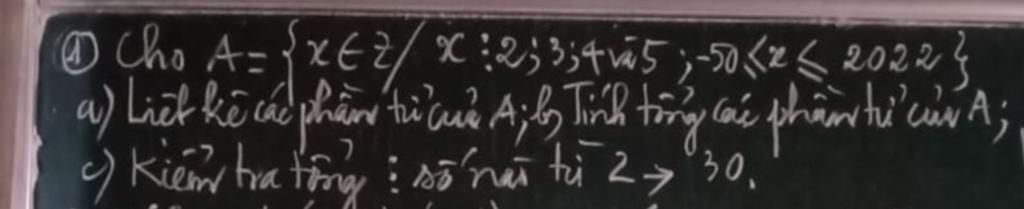 ① Cho A = { x ∈ Z / x ⋮ 2; 3; 4 và 5 ; -50 ≤ x ≤ 2022 }
a) Liệt kê các phần tử của A; b) Tính tổng các phần tử của A;
c) Kiểm tra tổng ⋮ số nào từ 2 → 30.